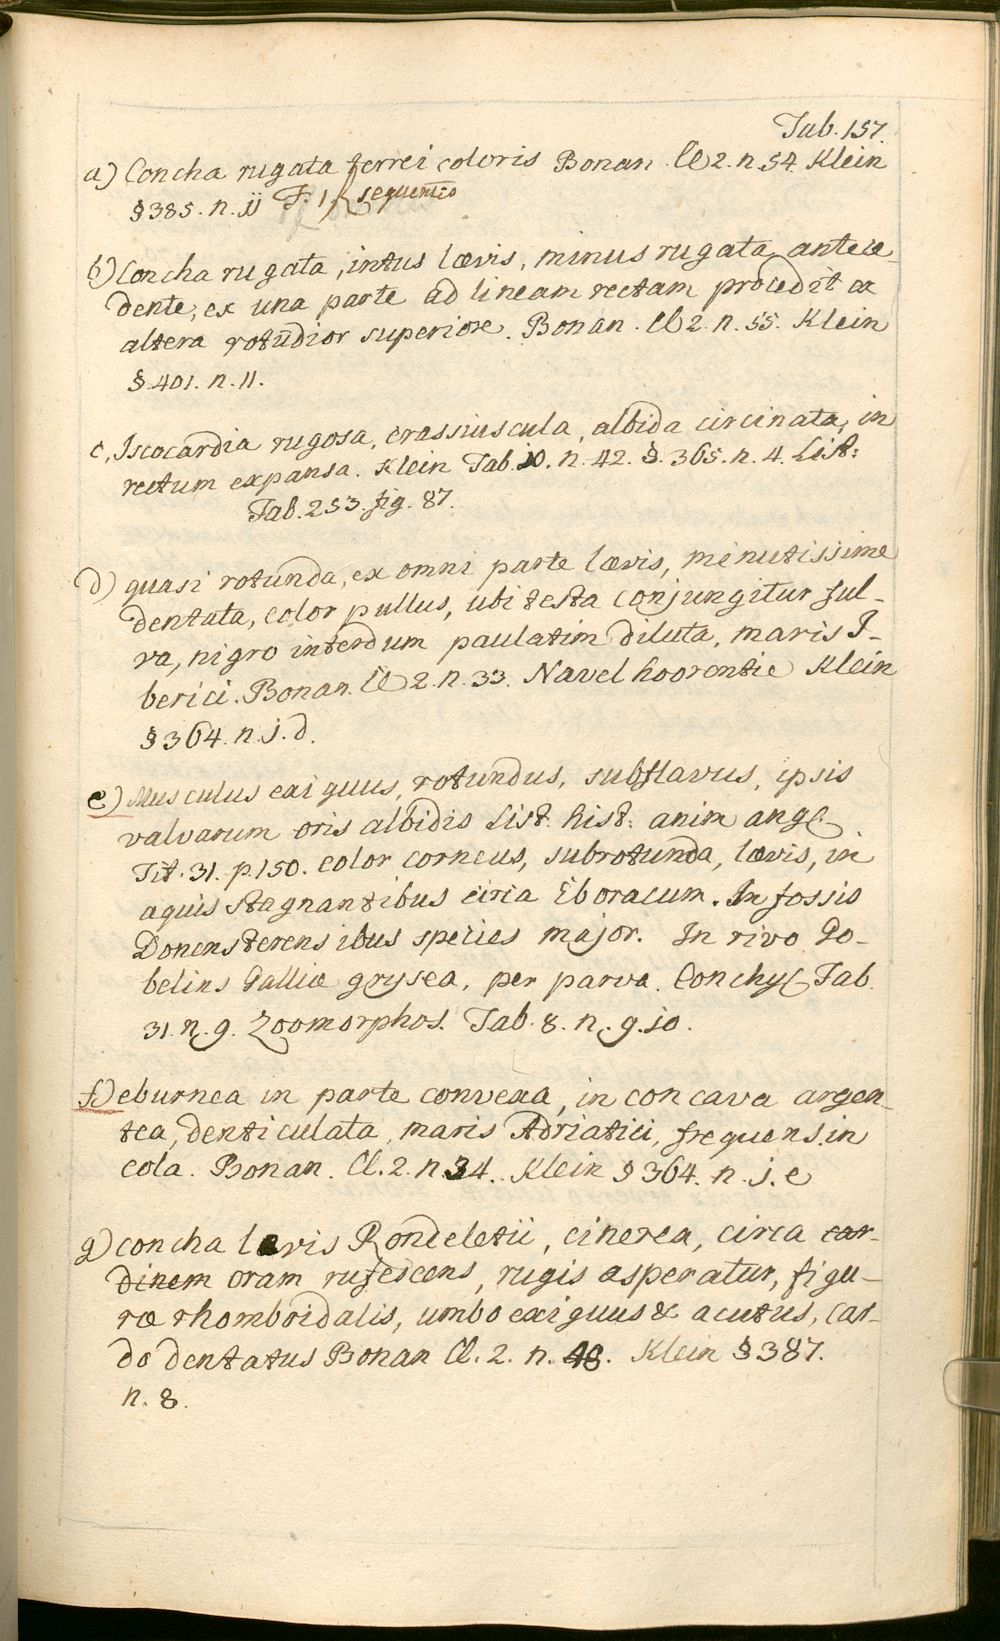 Tab. 157.
a) Concha rugata ferrei coloris Bonan. Cl 2. n. 54. Klein
§ 385. n. jj F. 1. sequentis
b) Concha rugata, intus lævis, minus rugata antece
dente, ex una parte ad lineam rectam procedit ex
altera rotūdior superiore. Bonan. Cl 2. n. 55. Klein
§ 401. n. 11.
c, Isocardia rugosa, crassiuscula, albida circinata, in
rectum expansa. Klein Tab. 10. n. 42. §. 365. n. 4. List:
Tab. 253. fig. 87.
d) quasi rotunda, ex omni parte lævis, minutissime
dentata, color pullus, ubi testa conjungitur ful-
va, nigro interdum paulatim diluta, maris I-
berici. Bonan. Cl 2. n. 33. Navel hoorentie Klein
§ 364. n. j. d.
e) Musculus exiguus, rotundus, subflavus, ipsis
valvarum oris albidis List. hist: anim angl.
Tit. 31. p. 150. color corneus, subrotunda, lævis, in
aquis stagnantibus circa Eboracum. In fossis
Doncnsterensibus species major. In rivo Go-
belins Galliæ grysea, per parva. Conchyl. Tab.
31. n. 9. Zoomorphos. Tab. 8. n. 9. 10.
f) eburnea in parte convexa, in concava argen-
tea, denticulata, maris Adriatici, frequens in
cola. Bonan. Cl. 2. n. 34. Klein § 364. n. j. e
g) concha levis Rondeletii, cinerea, circa car-
dinem oram rufescens, rugis asperatur, figu-
ræ rhomboidalis, umbo exiguus & acutus, car-
do dentatus Bonan Cl. 2. n. 48. Klein § 387.
n. 8.